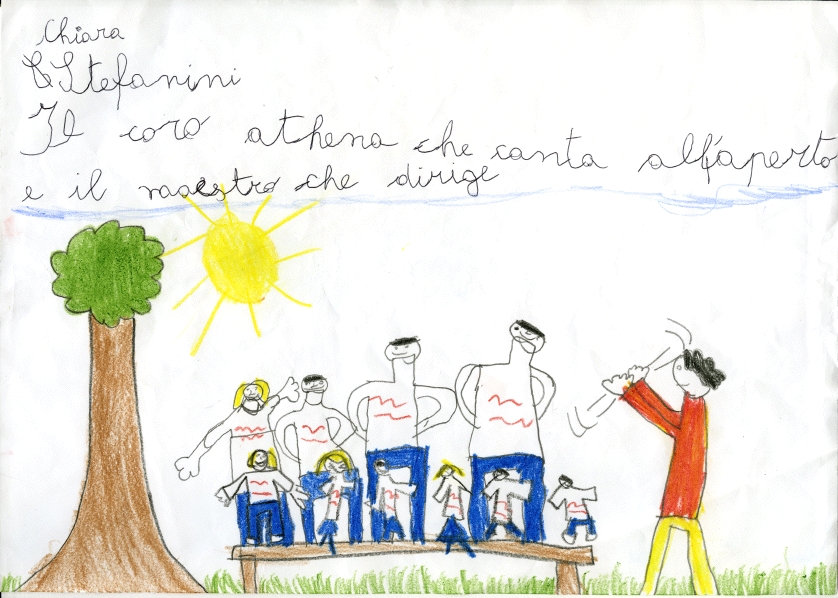 Chiara
Stefanini
Il coro athena che canta all'aperto
e il maestro che dirige